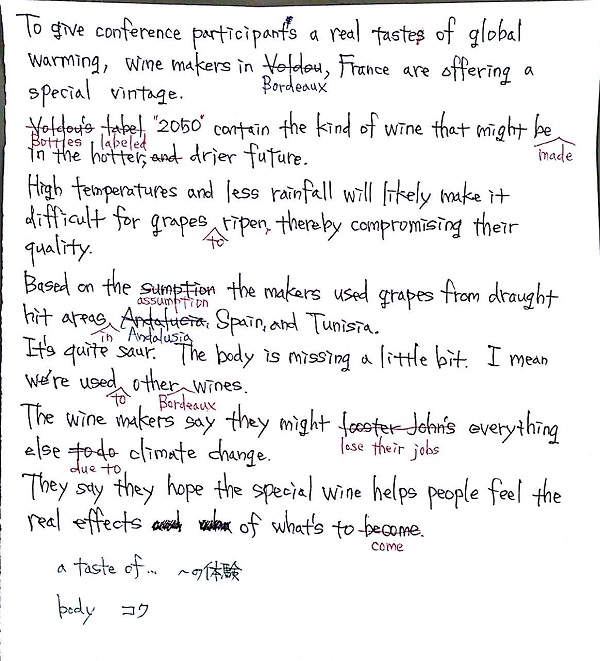 To give conference participants a real tastes of global
warming, wine makers in Voldou, France are offering a
Bordeaux
special vintage.
Voldou's label "2050" contain the kind of wine that might be
Bottles labeled made
in the hotter, and drier future.
High temperatures and less rainfall will likely make it
difficult for grapes ripen, thereby compromising their
to
quality.
Based on the sumption the makers used grapes from draught
assumption
hit areas Andafucia, Spain, and Tunisia.
in Andalusia
It's quite saur. The body is missing a little bit. I mean
we're used other wines.
to Bordeaux
The wine makers say they might fooster John's everything
lose their jobs
else to do climate change.
due to
They say they hope the special wine helps people feel the
real effects of what's to become.
come
a taste of... 〜の体験
body コク